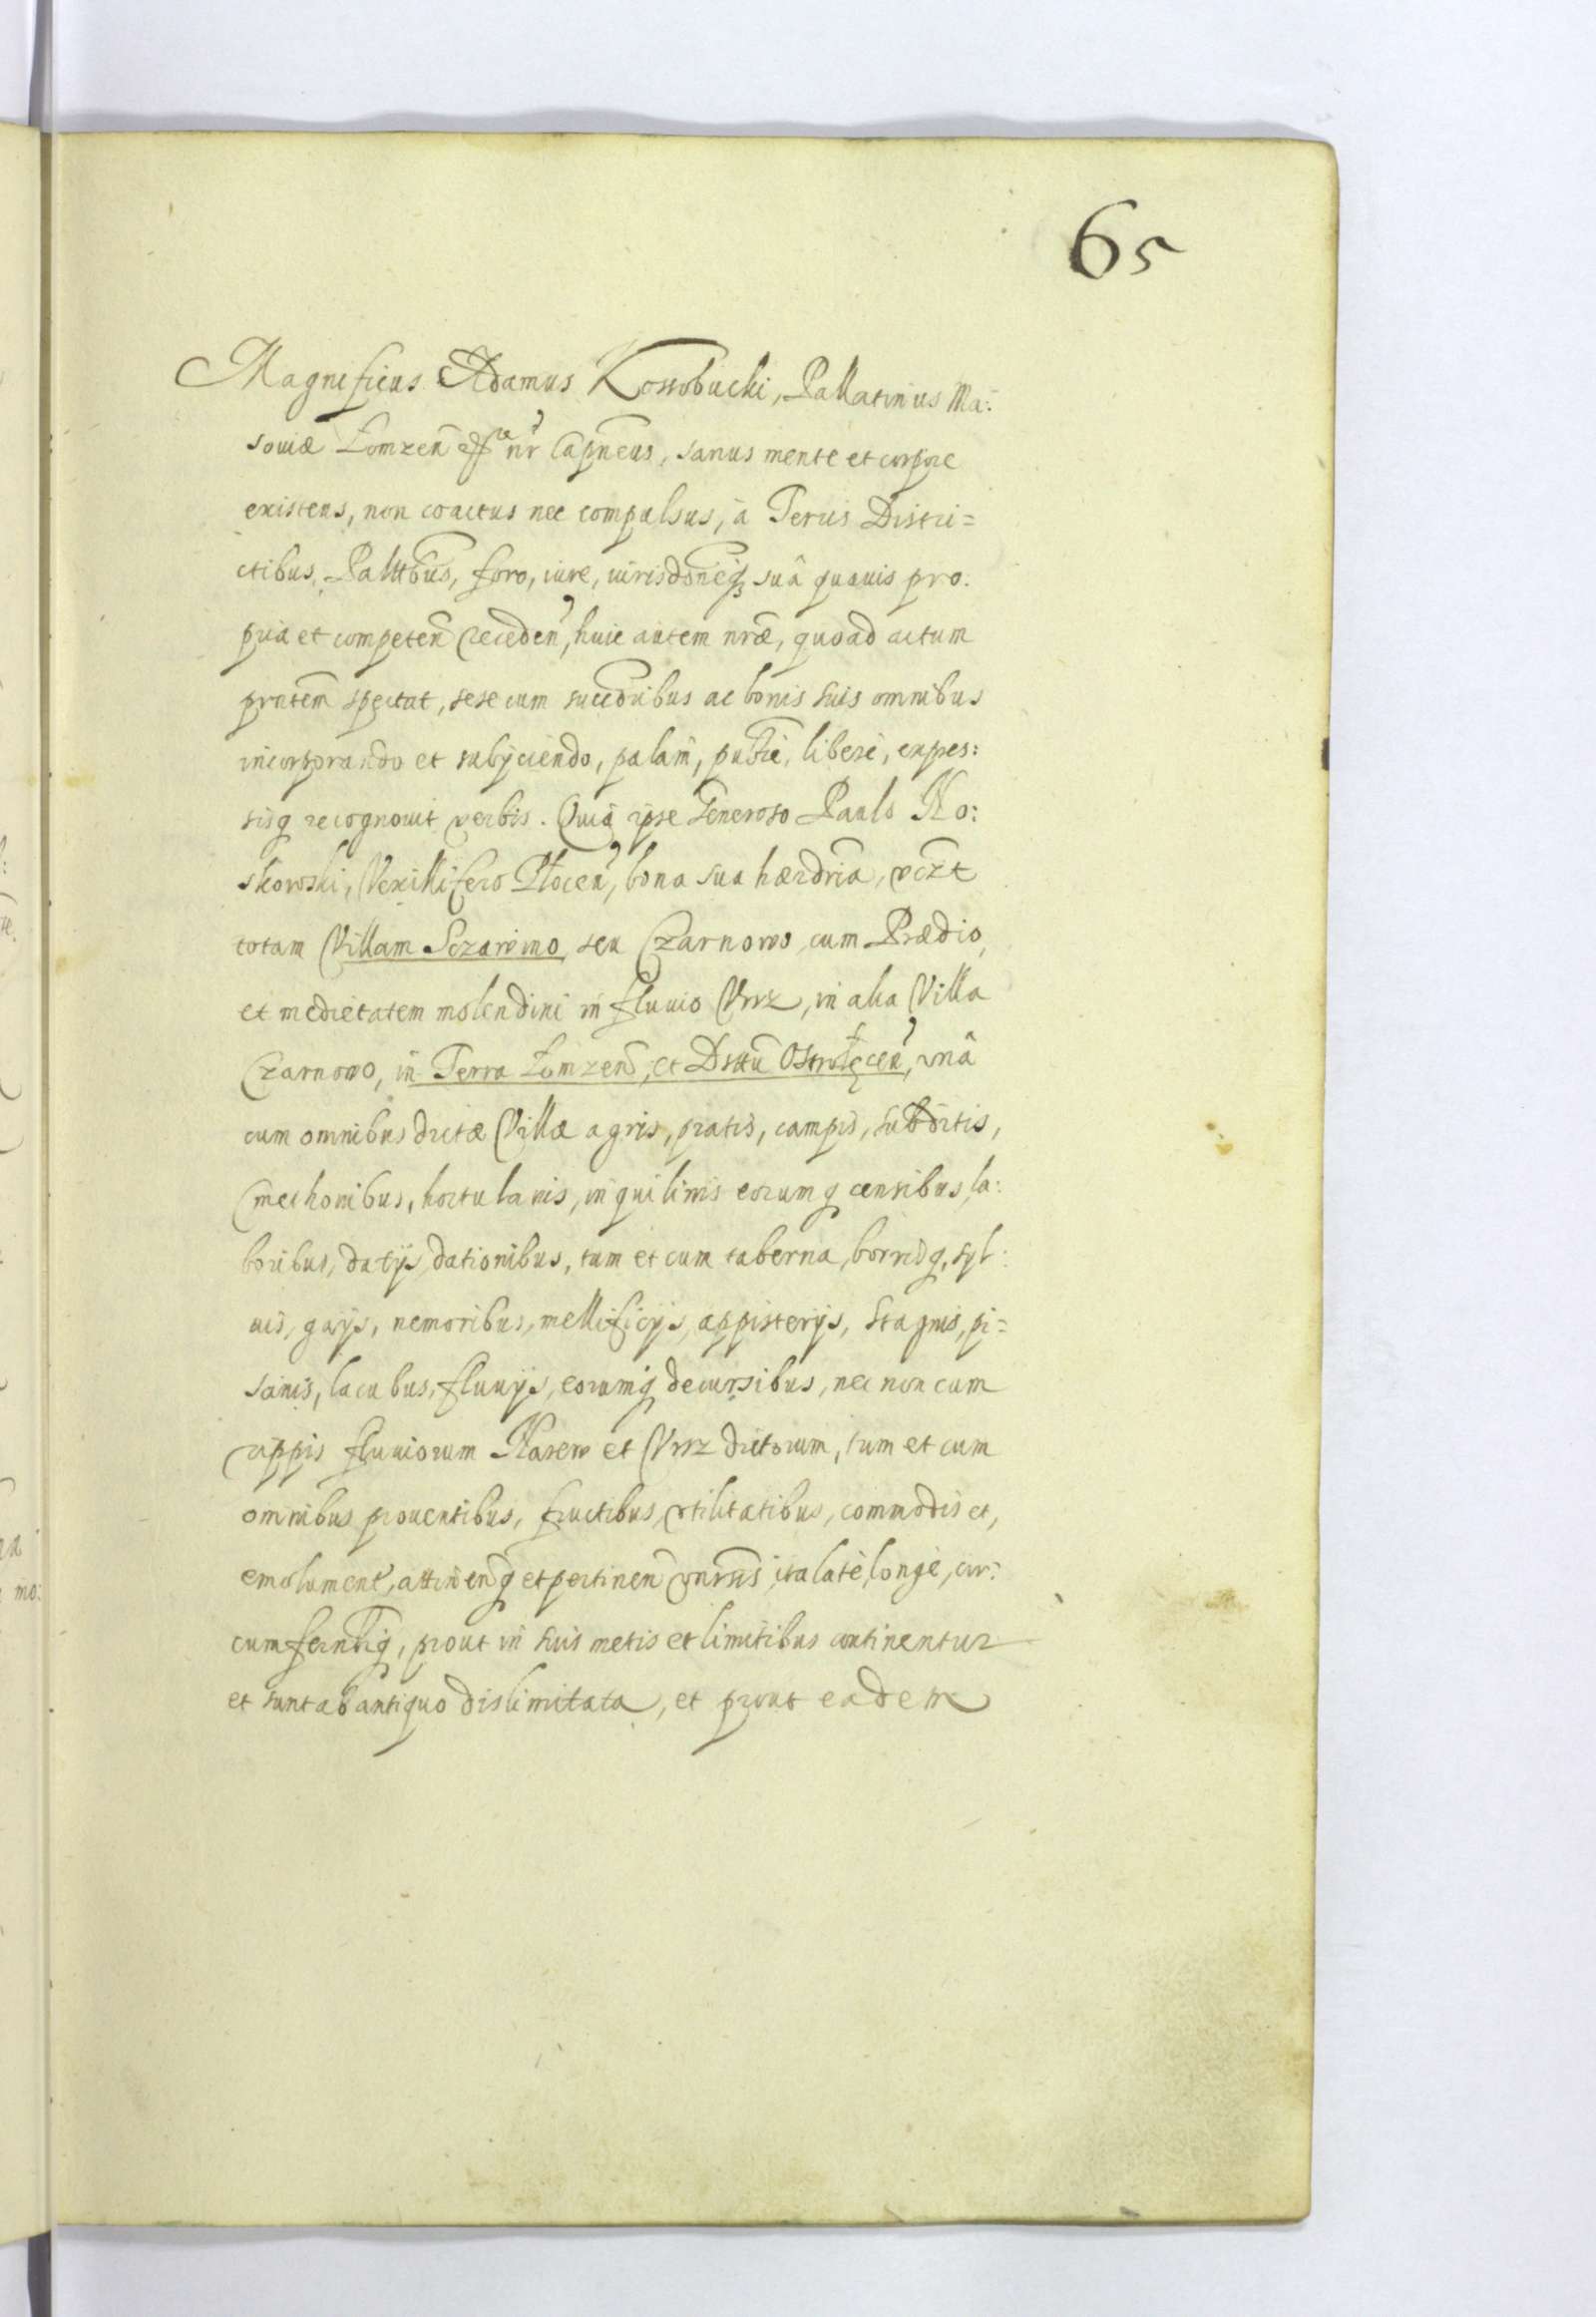 65
Magnificus Adamus Kossobucki, Pallatinus Ma:
souiæ Łomzeñ nr̃ Capñeus, sanus mente et corpore
existens, non coactus nec compulsus, à Terris Distri=
ctibus, Palttbus, foro, iure, iurisdõneq₃ suâ quauis pro:
pria et competeñ recedeñ, huic autem nræ̃, quoad actum
pñtem spectat, sese cum succõribus ac bonis suis omnibus
incorporando et subÿciendo, palam, publ̃e, liberè, expres:
sisq recognouit verbis. Quia ipse Generoso Paulo No:
skowski, Vexillifero Ploceñ, bona sua hærdria, vczt
totam Villam Sczawino seu Czarnowo, cum Prædio,
et medietatem molendini in fluuio Vrz, in alia Villa
Czarnowo, in Terra Łomzeñ, et Dsttũ Ostrołęceñ, vnâ
cum omnibus dictæ Villæ agris, pratis, campis, subditis,
Cmethonibus, hortulanis, inquilinis eorumq censibus, la:
boribus, datÿs, dationibus, tum et cum taberna, borrisq, syl:
uis, gaÿs, nemoribus, mellificÿs, appisterÿs, stagnis, pi=
scinis, lacubus, fluuÿs, eorumq decursibus, nec non cum
rippis fluuiorum Narew et Vrz dictorum, tum et cum
omnibus prouentibus, fructibus, vtilitatibus, commodis et,
emolument, attineñq et pertineñ vnrsis, ita latè, longè, cir:
cumferntiq, prout in suis metis et limitibus continentur
et sunt ab antiquo dislimitata, et prout eadem